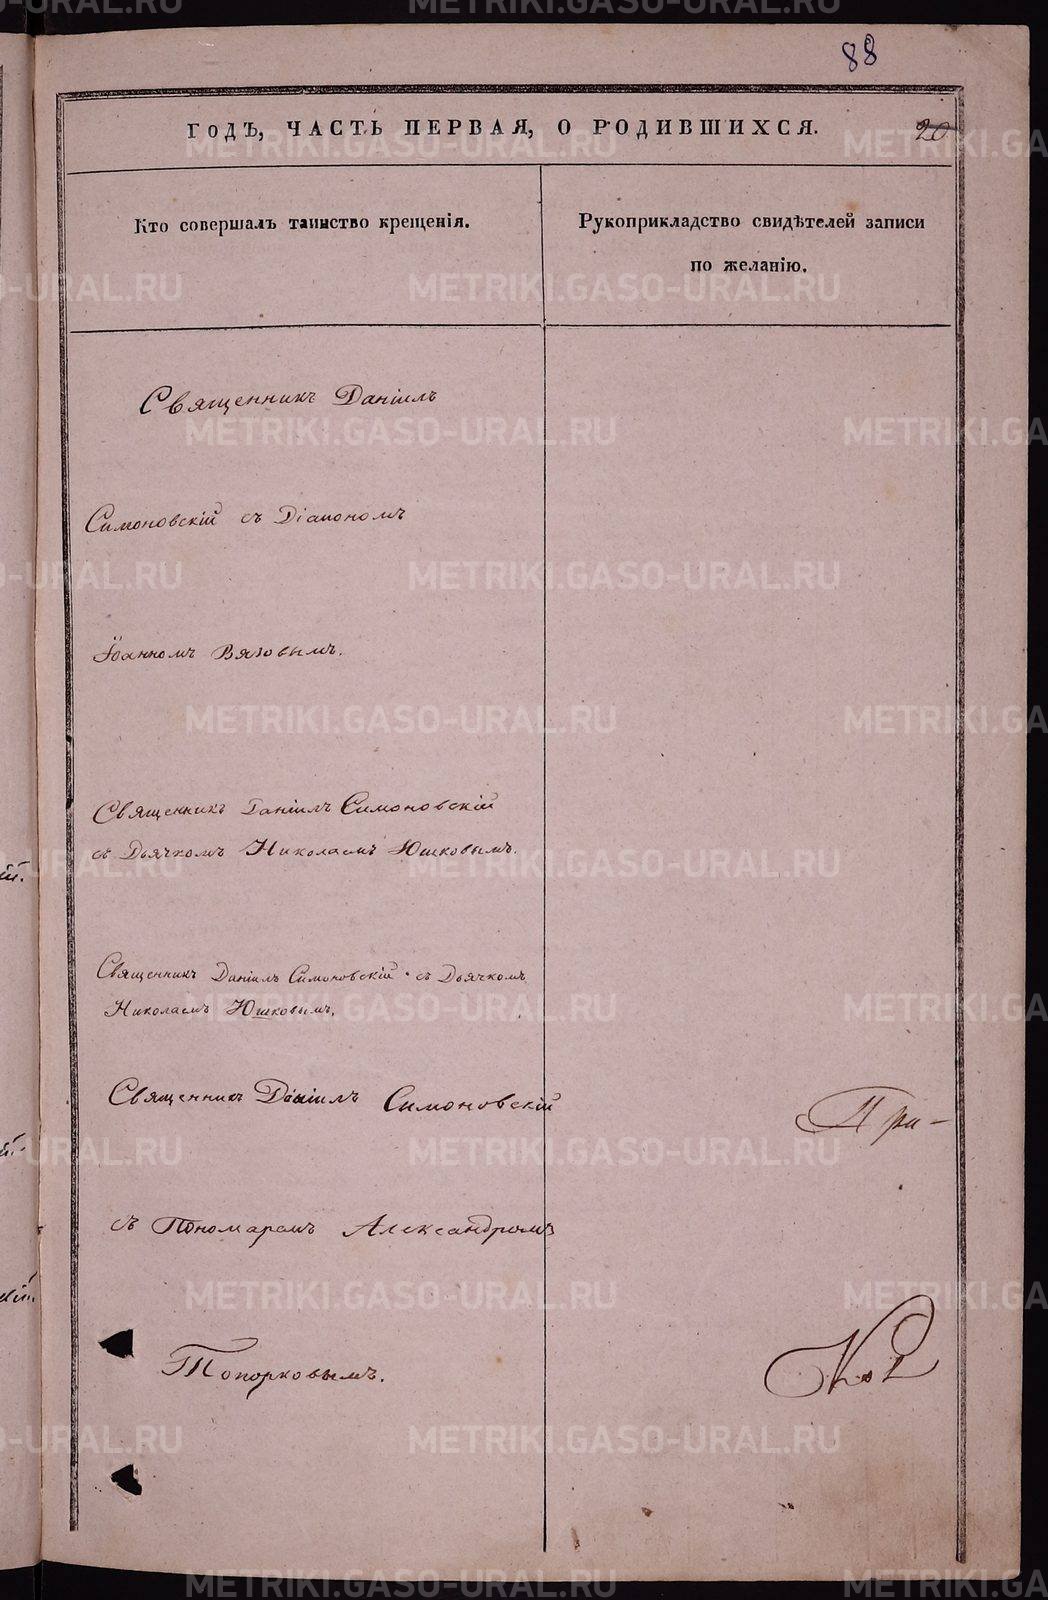 88
ГОДЪ, ЧАСТЬ ПЕРВАЯ, О РОДИВШИХСЯ.
20
Кто совершалъ таинство крещенія.
Рукоприкладство свидѣтелей записи
по желанію.
Священникъ Даніилъ
Симоновскій съ Діакономъ
Іоанномъ Вязовымъ.
Священникъ Даніилъ Симоновскій
съ Дьячкомъ Николаемъ Юшковымъ.
Священникъ Даніилъ Симоновскій съ Дьячкомъ
Николаемъ Юшковымъ.
Священникъ Даніилъ Симоновскій
При-
съ Пономаремъ Александромъ
Топорковымъ.
METRIKI.GASO-URAL.RU